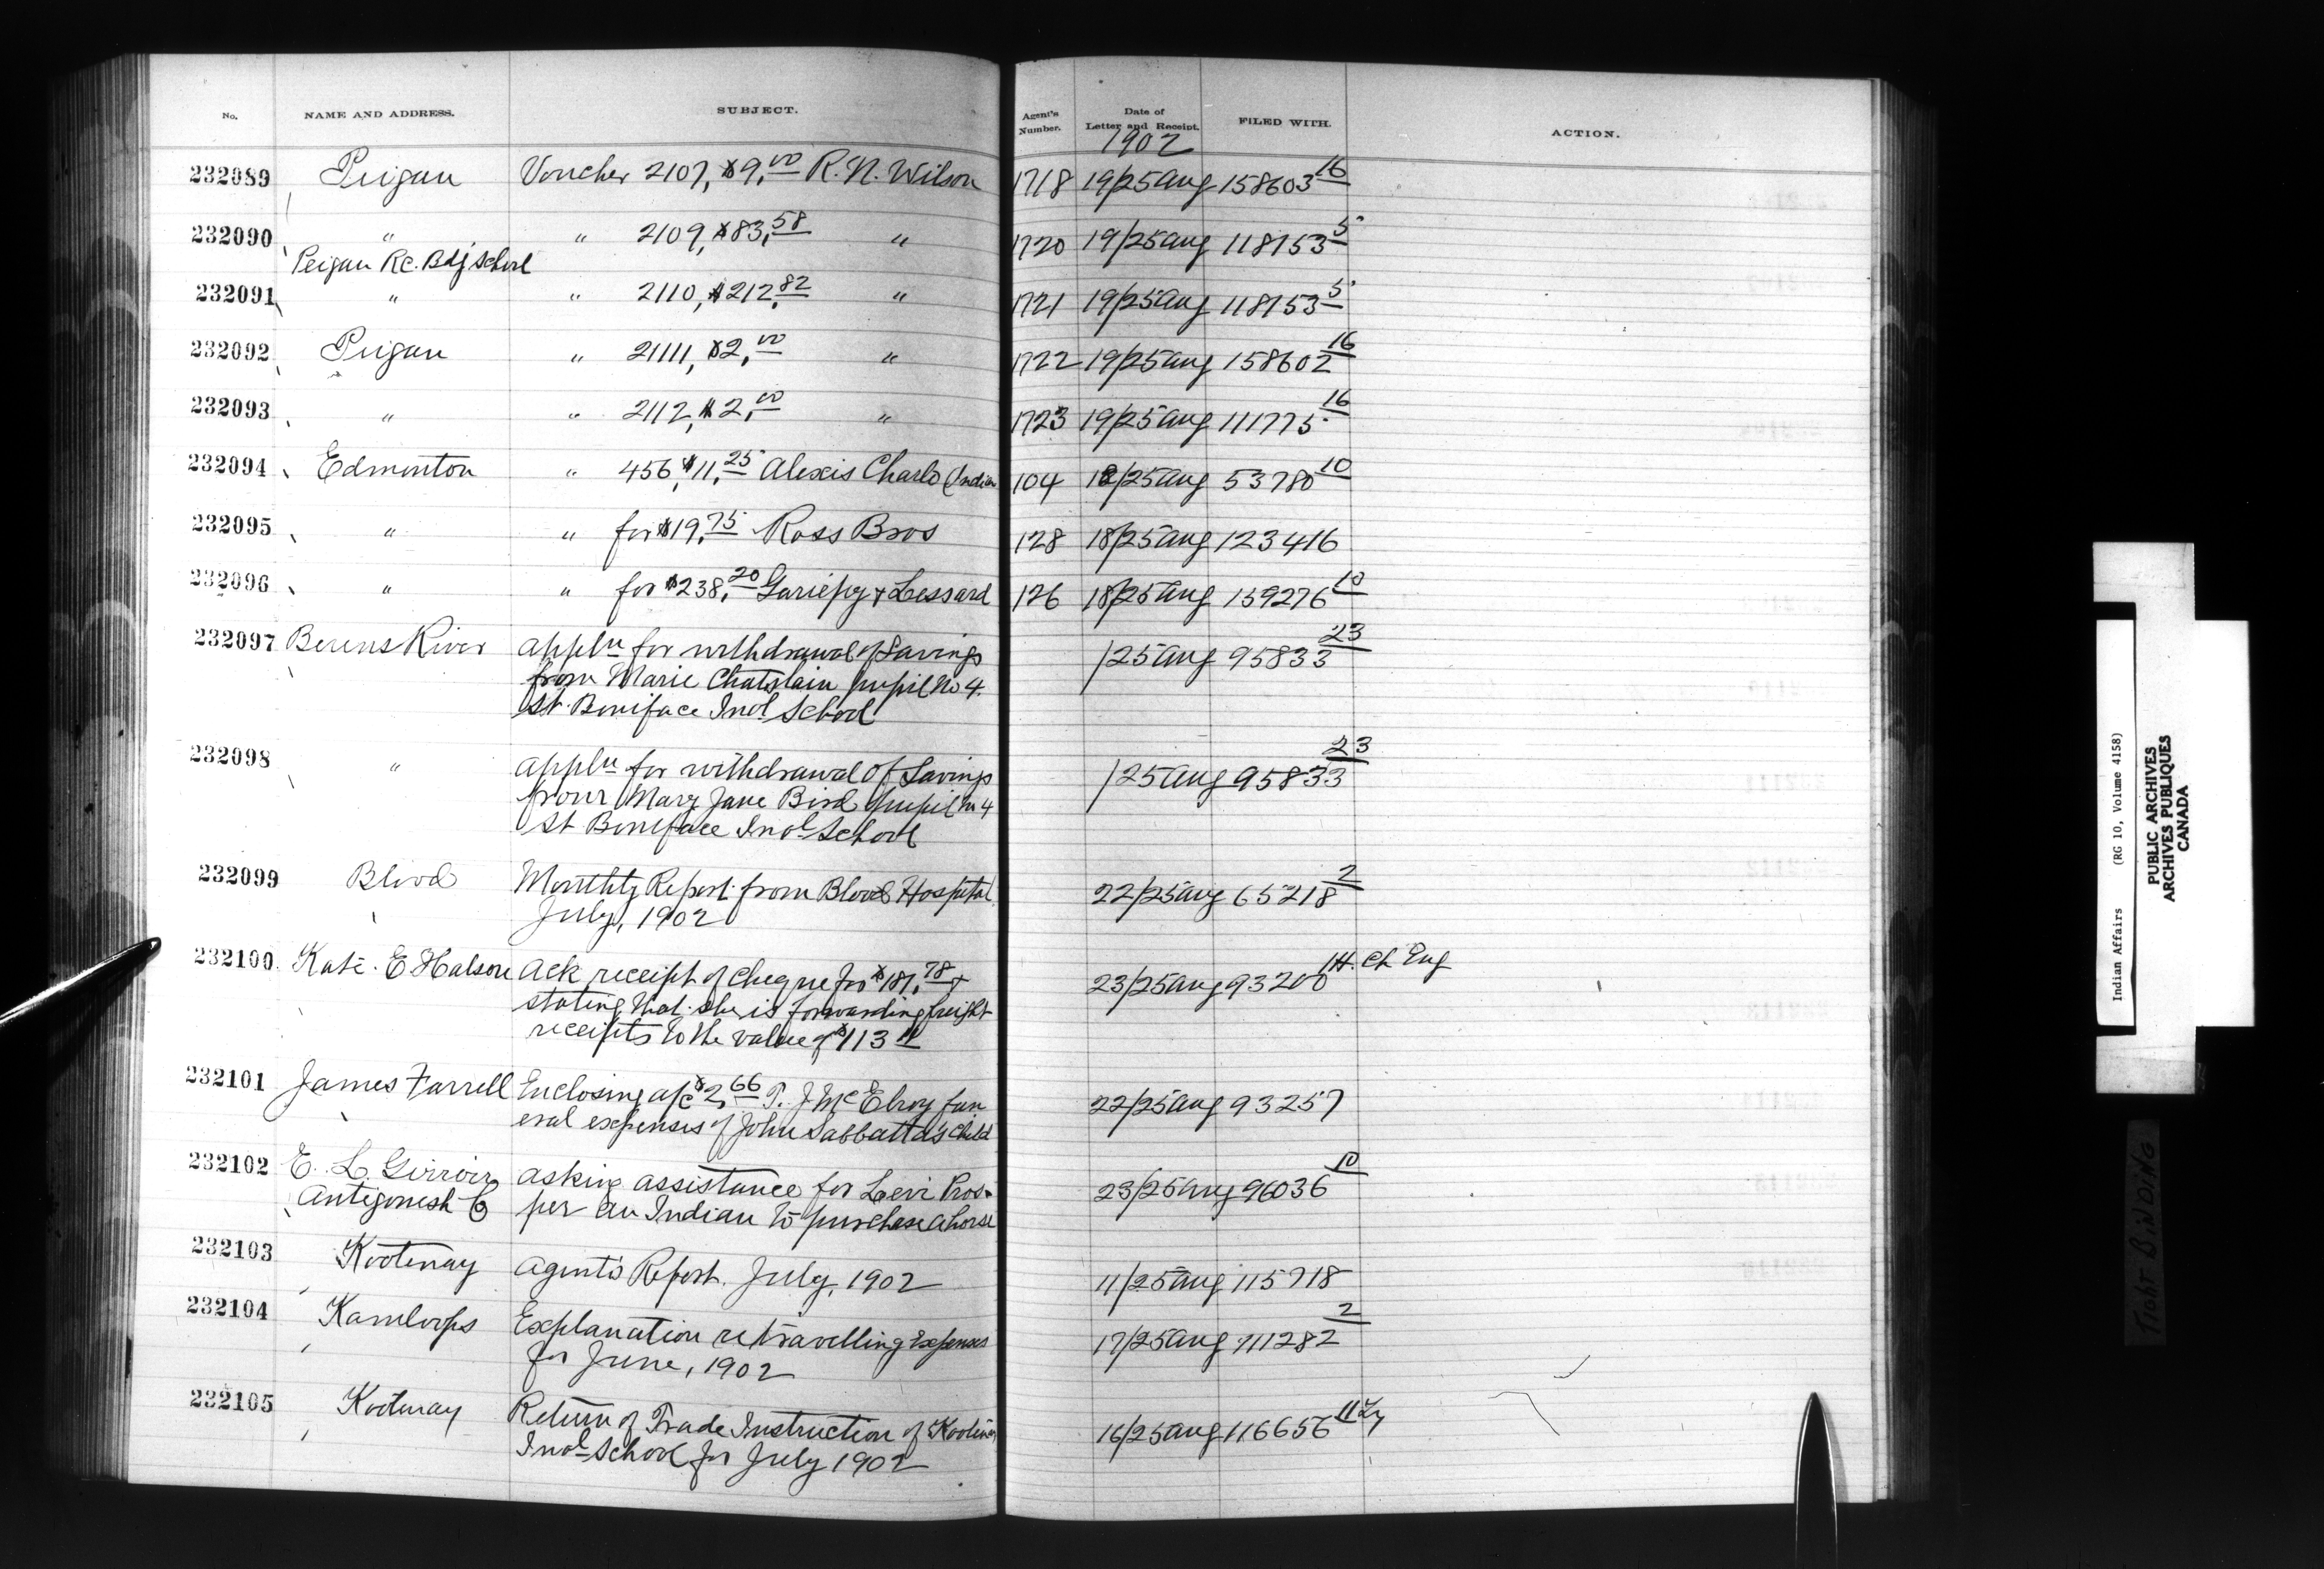 No. NAME AND ADDRESS. SUBJECT. Agent's Number. Date of Letter and Receipt. FILED WITH. ACTION.
1902
232089 Peigan Voucher 2107, $9,00 R. N. Wilson 1718 19/25 Aug 158603 16
232090 " " 2109, $83,58 " 1720 19/25 Aug 118153 5
Peigan R.C. Bdg School
232091 " " 2110, $212,82 " 1721 19/25 Aug 118153 5
232092 Peigan " 21111, $2,00 " 1722 19/25 Aug 158602 16
232093 " " 2112, $2,00 " 1723 19/25 Aug 111775 16
232094 Edmonton " 456, $11,25 Alexis Charlo (Indian 104 18/25 Aug 53780 10
232095 " " for $19,75 Ross Bros 128 18/25 Aug 123416
232096 " " for $238,20 Gariepy & Lessard 126 18/25 Aug 159276 10
232097 Berens River Appln for withdrawal of Savings /25 Aug 95833 23
from Marie Chatelain pupil No 4.
St. Boniface Indl School
232098 " Appln for withdrawal of Savings /25 Aug 95833 23
from Mary Jane Bird pupil No 4
St Boniface Indl School
232099 Blood Monthly Report from Blood Hospital 22/25 Aug 65218 2
July, 1902
232100 Kate. E Halson Ack receipt of cheque for $181,78 & 23/25 Aug 93200 14. Ch Eng
stating that she is forwarding freight
receipts to the value of $113 11
232101 James Farrell Enclosing a/c $2,66 P. J. McElroy fun 22/25 Aug 93257
eral expenses of John Sabbatta's child
232102 E. L. Girroir asking assistance for Levi Pros- 23/25 Aug 96036 10
Antigonish Co per an Indian to purchase a horse
232103 Kootenay Agents Report. July, 1902 11/25 Aug 115718
232104 Kamloops Explanation re travelling expenses 17/25 Aug 111282 2
for June, 1902
232105 Kootenay Return of Trade Instruction of Kootenay 16/25 Aug 116656 11
Indl School for July 1902
Indian Affairs (RG 10, Volume 4158)
PUBLIC ARCHIVES
ARCHIVES PUBLIQUES
CANADA
TIGHT BINDING